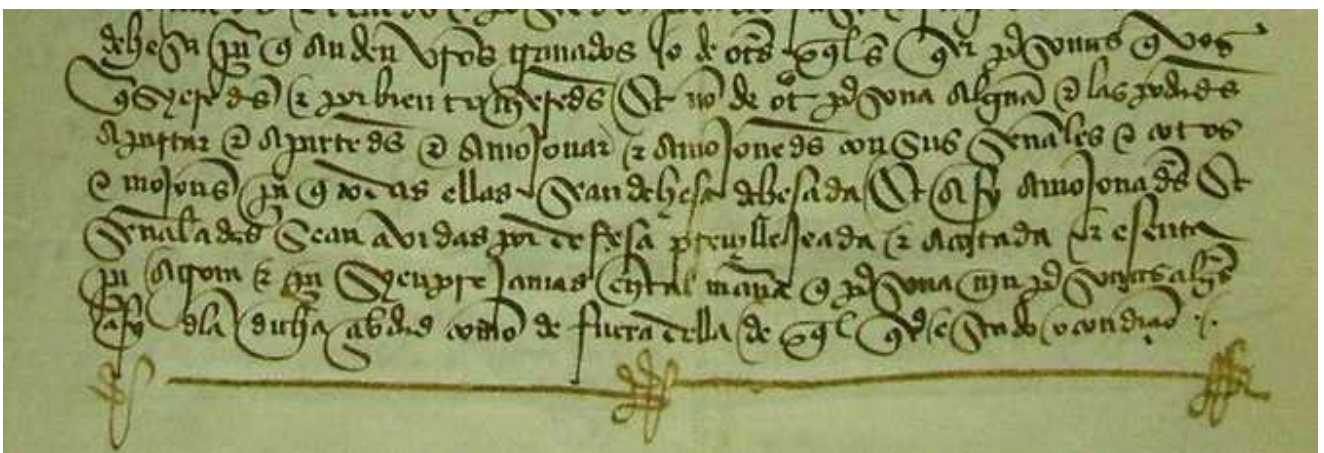 dehesa pa q anden vros ganados o de otras qles qer psonas q vos
qsyeredes e por bien tovieredes Et no de otra psona algna e las podades
apartar e apartedes e amojonar e amojonedes con sus señales e cotos
e mojones pa q todas ellas sean dehesa dehesada Et asy amojonadas Et
señaladas sean avidas por defesa previllejeada e acotada e esenta
pa agora e pa syenpre jamas en tal mana q psona nin psonas algas
asy dla dicha çibdad como de fuera della de qql qer estado o condiçion